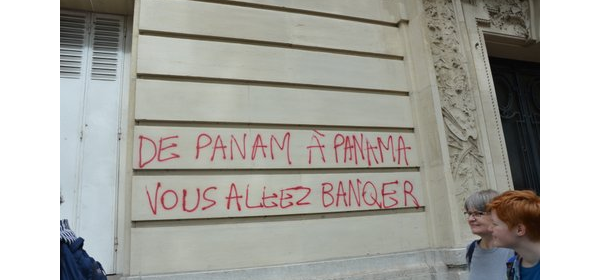 DE PANAM À PANAMA
VOUS ALLEZ BANQER